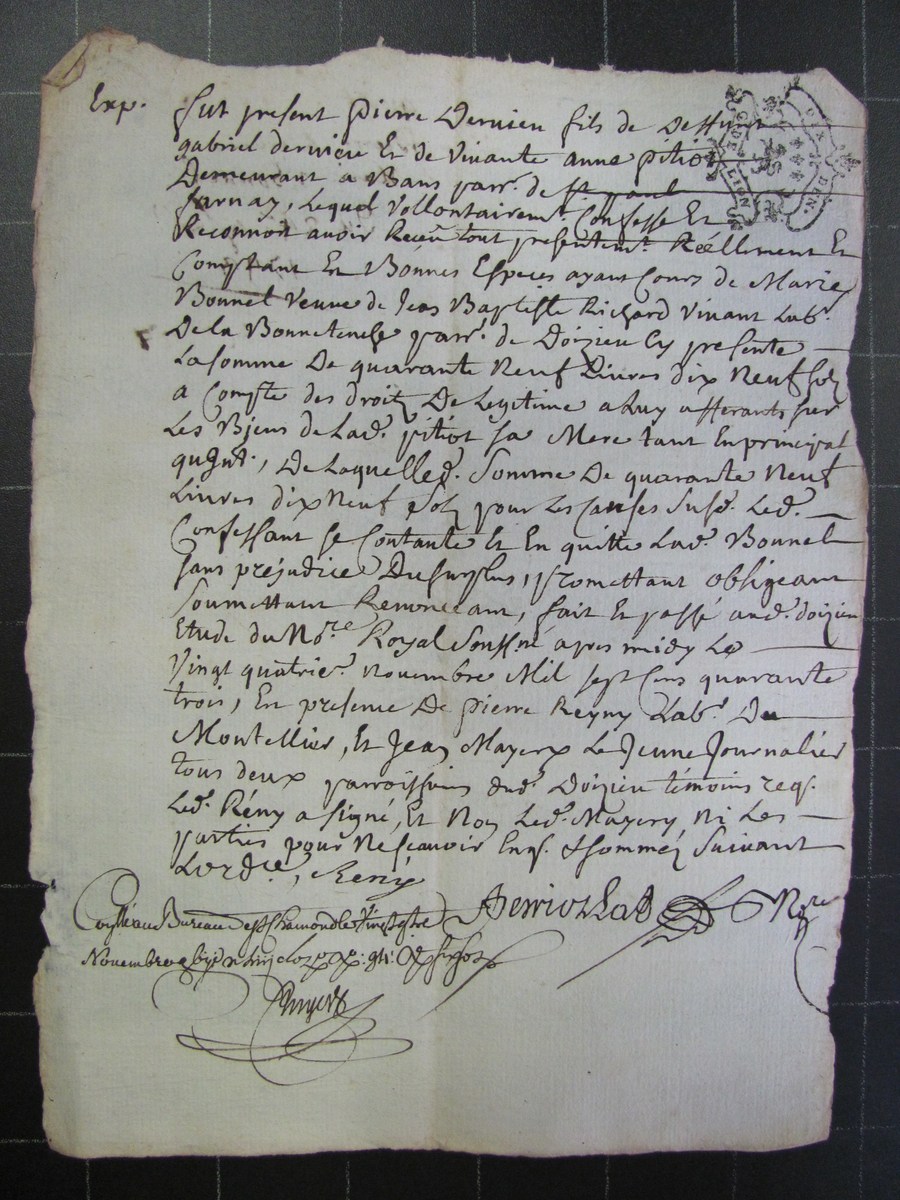 Exp.
fut present pierre Dervieu fils de deffunt
gabriel dervieu Et de vivante anne pitiot
Demeurant a Bans parr.e de st paul
farnay, Lequel Vollontairem.t Confesse Et
Reconnoit avoir Receu tout presentem.t Reellement Et
Comptant En Bonnes Especes ayant Cours de Marie
Bonnel Veuve de Jean Baptiste Richard vivant Lab.r
De la Bonnetenche parr.e de Doizieu Cy presente
La somme De quarante Neuf Livres dix Neuf sols
a Compte des droits De Legitime a Luy afferants sur
Les Biens de Lad.e pitiot sa Mere tant En principal
qu'Int.s, De Laquelle d.e Somme De quarante Neuf
Livres dix Neuf Sols pour Les Causes Susd.es Led.t
Confessant se Contante Et En quitte Lad.e Bonnel
sans prejudice Du surplus, promettant obligeant
Soumettant Renonceant, fait Et passé aud.t doizieu
Etude du No.re Royal Souss.né apres midy Le
Vingt quatrie.e novembre Mil sept Cens quarante
trois, En presence De pierre Reyny Lab.r Du
Montellier, Et Jean Mayery Le Jeune Journalier
tous deux parroissiens dud.t Doizieu témoins req.s
Led.t Rény a signé, Et Non Led.t Mayery Ni Les
parties pour Ne Scavoir Enq.s Et sommés Suivant
L'ord.ce, Reny
No.re
Conllé au Bureau de st Chamond le vingt
Novembre
GEN. LION
DIX DEN.